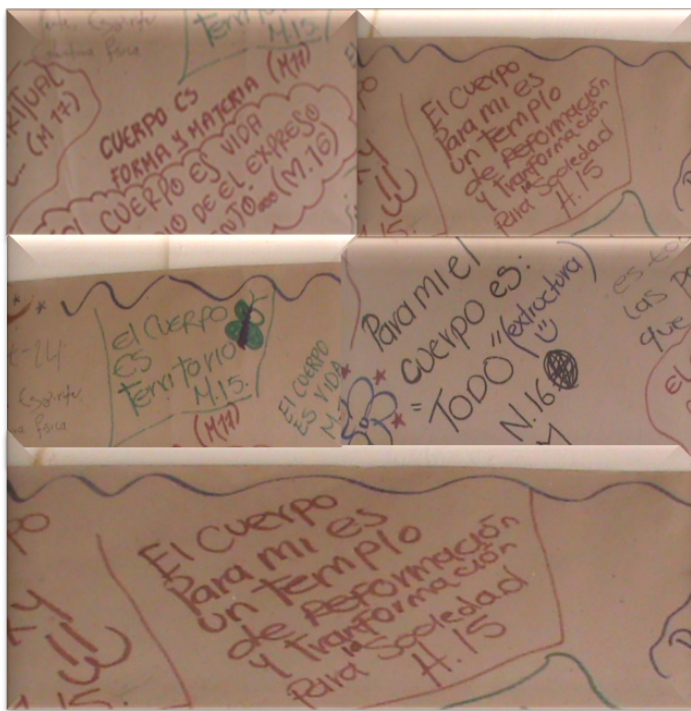 Territorio
M.15
(M 17)
CUERPO ES
FORMA Y MATERIA (M17)
CUERPO ES VIDA
DE EL EXPRESO
(M.16)
El Cuerpo
Para mi es
un templo
de Reformación
y Tranformación
Para la Sociedad
H.15
el CUERPO
ES
Territorio
M.15.
(M17)
El CUERPO
ES VIDA
Para mi el
cuerpo es:
= TODO "(extructura)
N.16
es
las
que
El
El Cuerpo
Para mi es
un templo
de Reformación
y Tranformación
Para la Sociedad
H.15